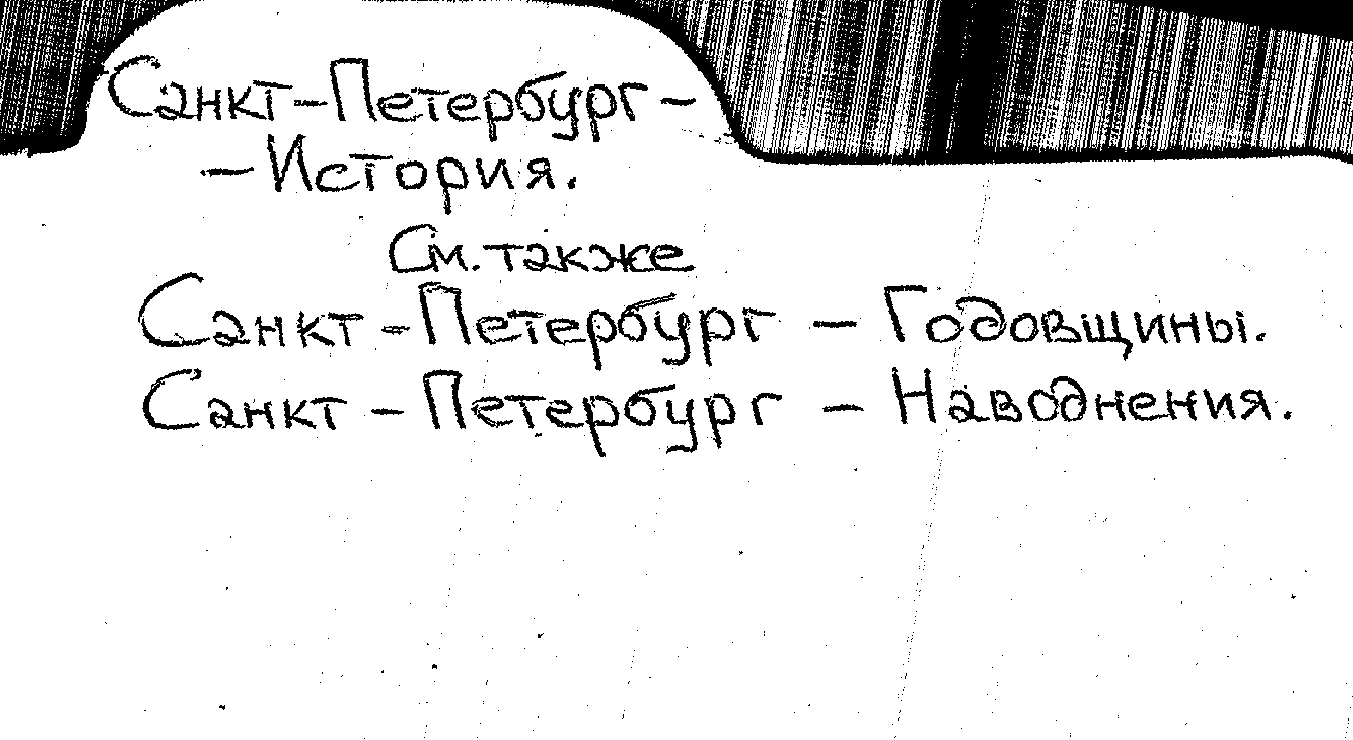 Санкт-Петербург-
-История.
См. также
Санкт-Петербург - Годовщины.
Санкт-Петербург - Наводнения.